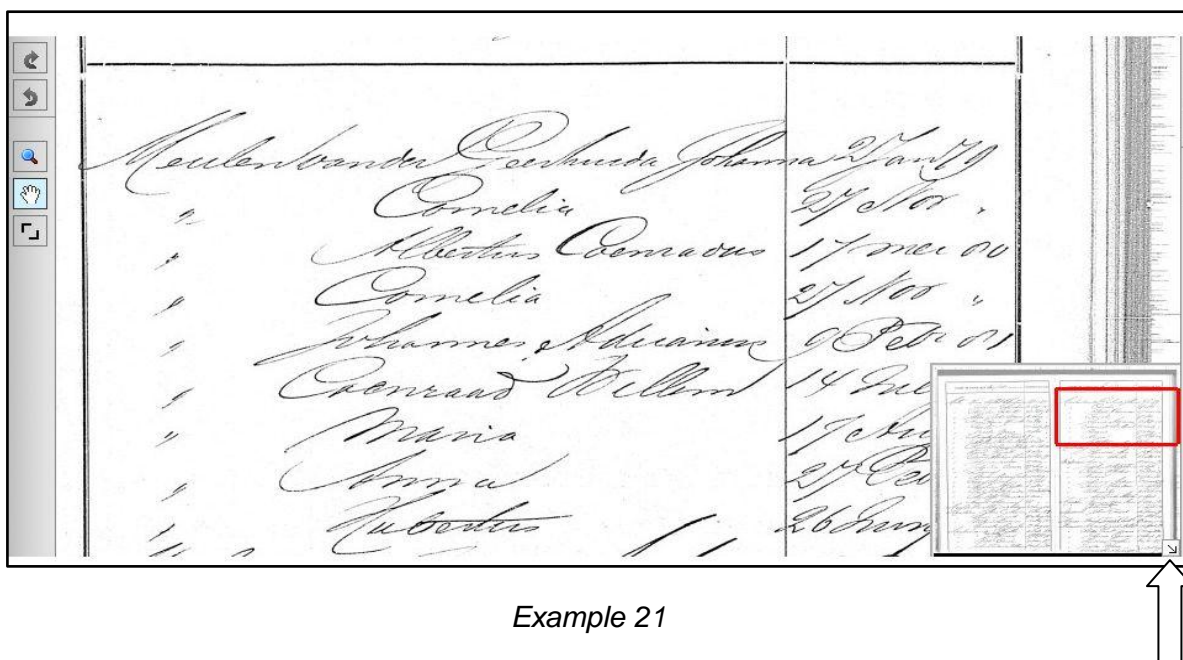 Meulen vander Geertruida Johanna 2 Jan 79
" Cornelia 27 Nov "
" Albertus Coenradus 17 mei 80
" Cornelia 27 Nov "
" Johannes Adrianus 9 Feb 81
" Coenraad Willem 14
" Maria 17
" Anna 27
" Hubertus 26
Example 21